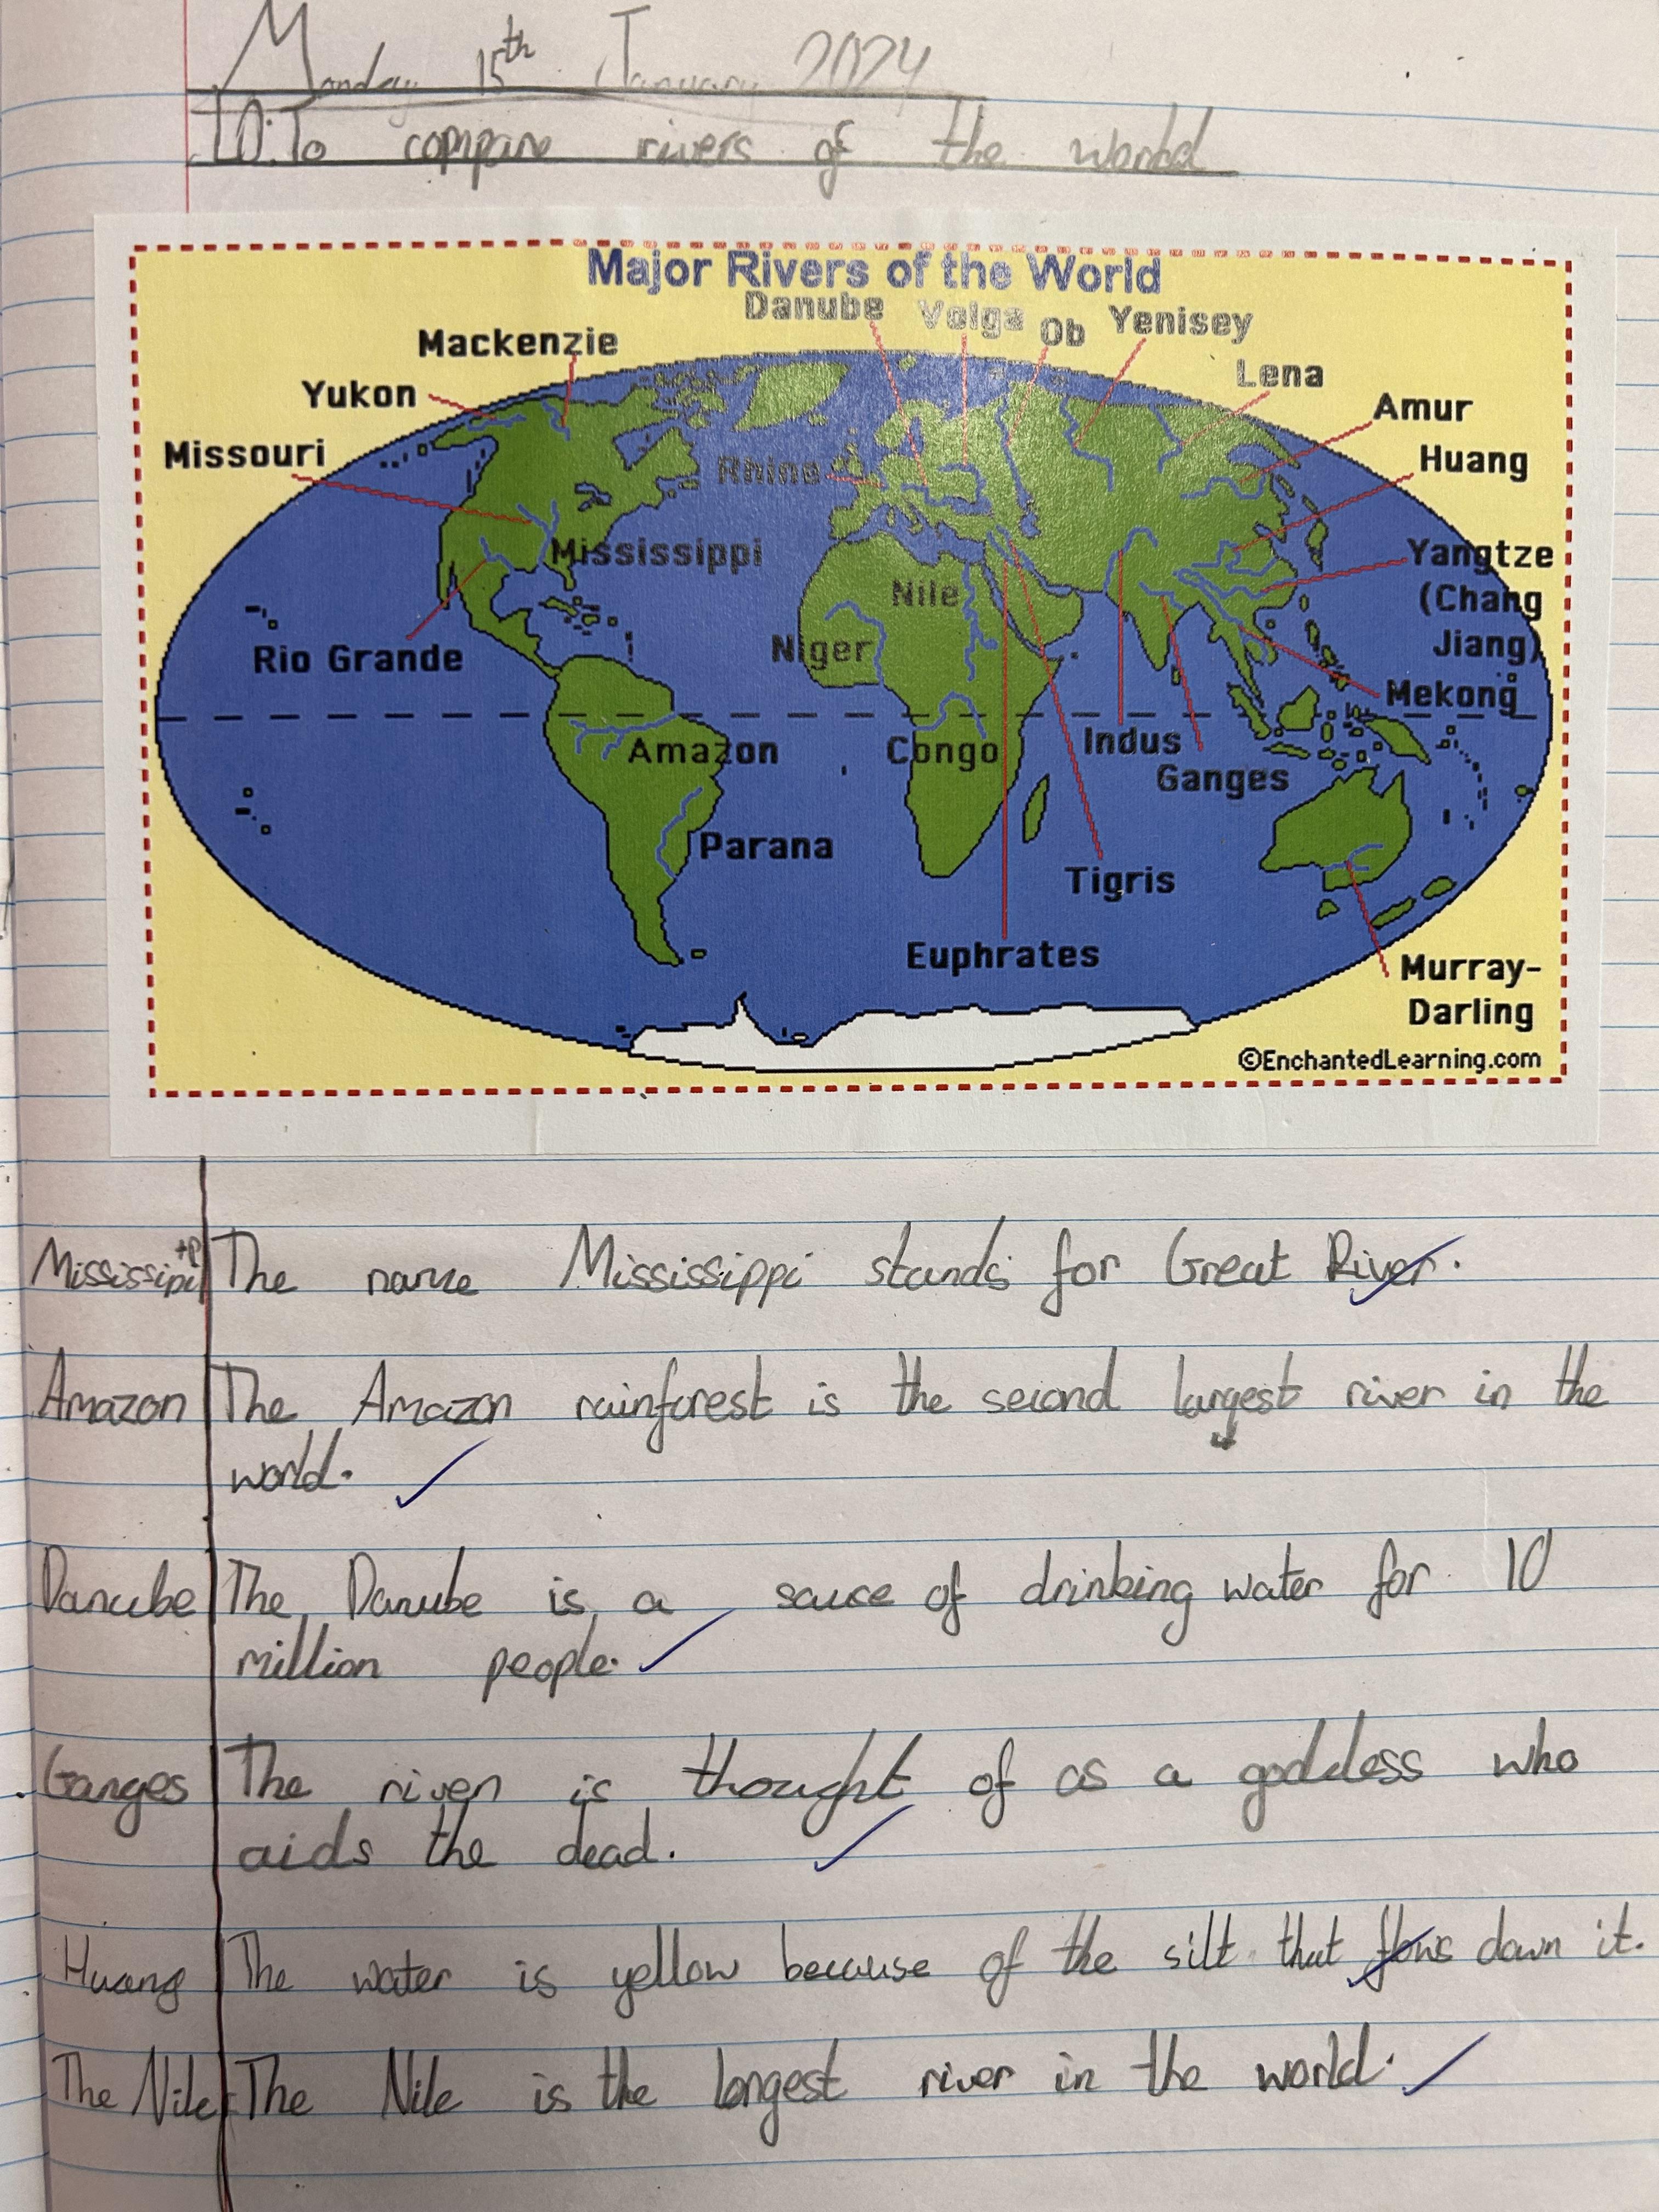 Monday 15th January 2024
LO: To compare rivers of the world
Major Rivers of the World
Danube Volga Ob Yenisey
Mackenzie
Lena
Yukon
Amur
Missouri
Rhine
Huang
Mississippi
Yangtze
(Chang
Jiang)
Nile
Niger
Rio Grande
Mekong
Amazon
Congo
Indus
Ganges
Parana
Tigris
Euphrates
Murray-
Darling
©EnchantedLearning.com
Mississipi +P The name Mississippi stands for Great River.
Amazon The Amazon rainforest is the second largest river in the
world.
Danube The Danube is a sause of drinking water for 10
million people.
Ganges The river is thought of as a goddess who
aids the dead.
Huang The water is yellow because of the silt that flows down it.
The Nile The Nile is the longest river in the world.